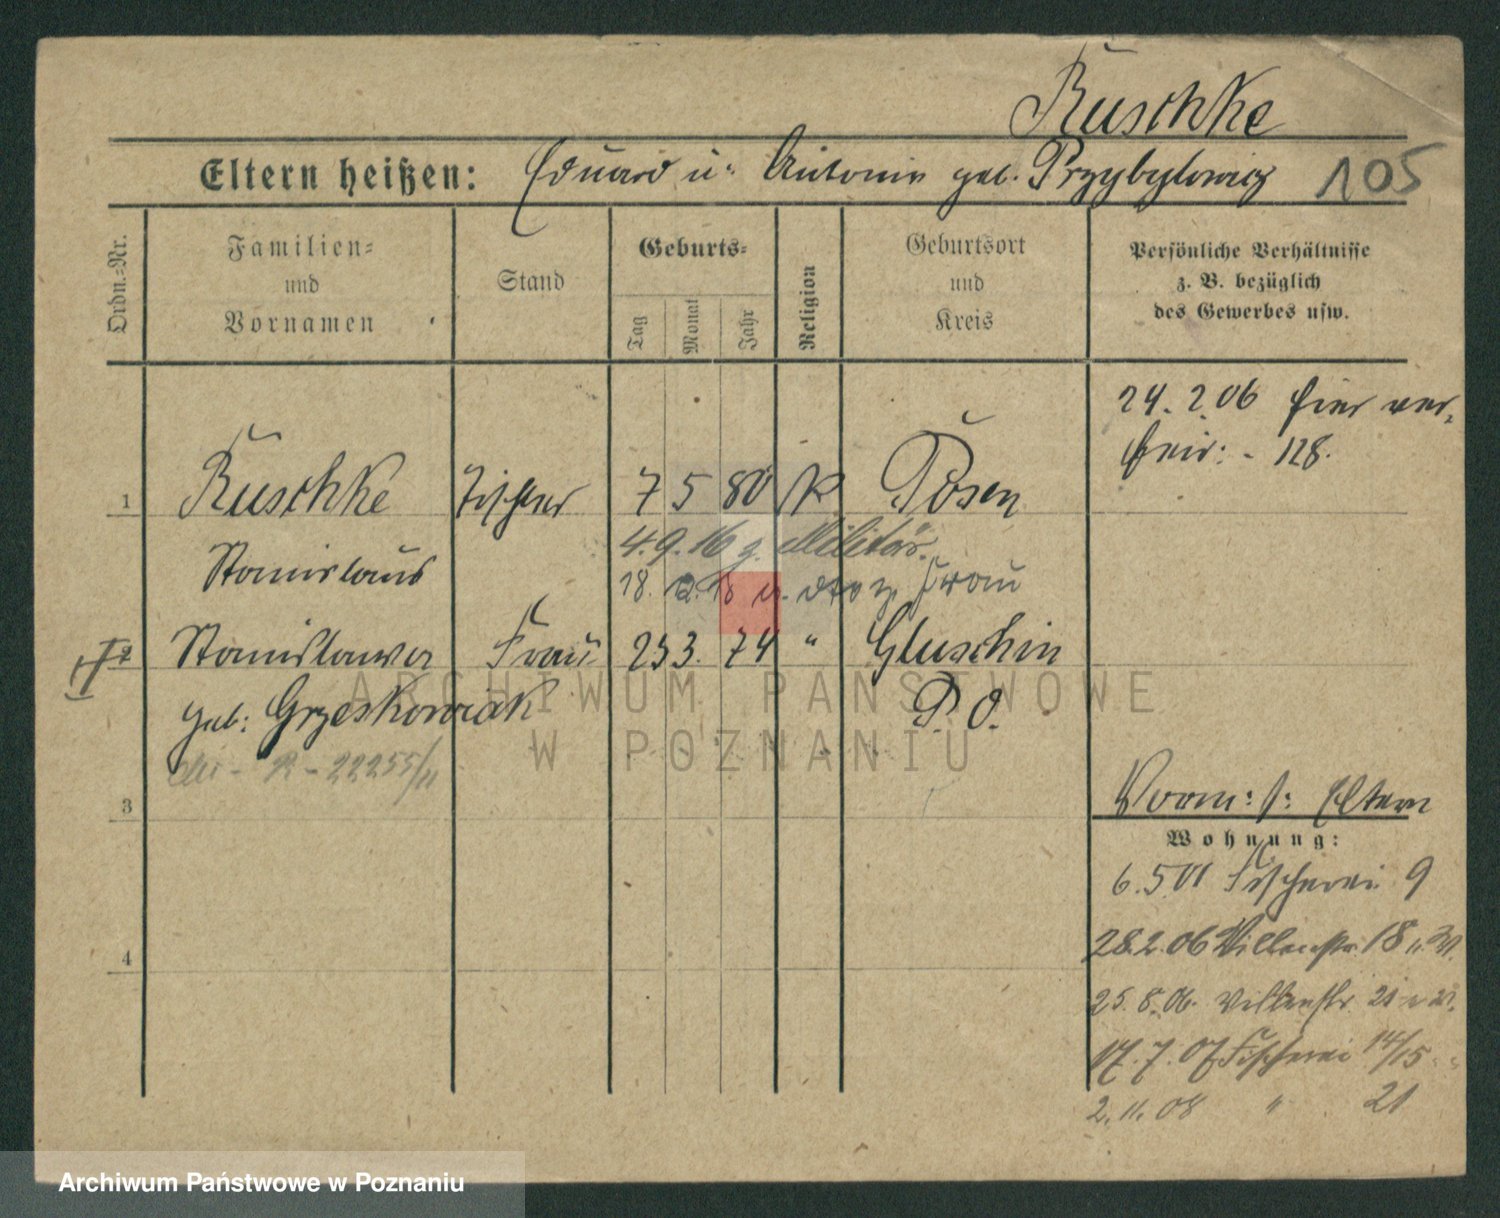 Ruschke
Eltern heißen: Eduard u. Antonie geb. Przybylowicz 105
Ordn.=Nr.
Familien=
und
Vornamen
Stand
Geburts=
Tag
Monat
Jahr
Religion
Geburtsort
und
Kreis
Persönliche Verhältnisse
z. B. bezüglich
des Gewerbes usw.
24. 2. 06 hier ver-
heir: - 128.
1 Ruschke Tischler 7 5 80 K Posen
4. 9. 16 z. Militär.
Stanislaus
18. 12. 18 v. dto z. Frau
2 Stanislawa Frau 25 3. 74 " Gluschin
geb: Grzeskowiak P. O.
R - 22255/11
3
Vorm: s: Eltern
Wohnung:
6. 5 01 Fischerei 9
28. 2. 06 Villenstr. 18
4
25. 8. 06. Villenstr. 21
17. 7. 07 Fischerei 14/15
2. 11. 08 " 21
ARCHIWUM PAŃSTWOWE
W POZNANIU
Archiwum Państwowe w Poznaniu